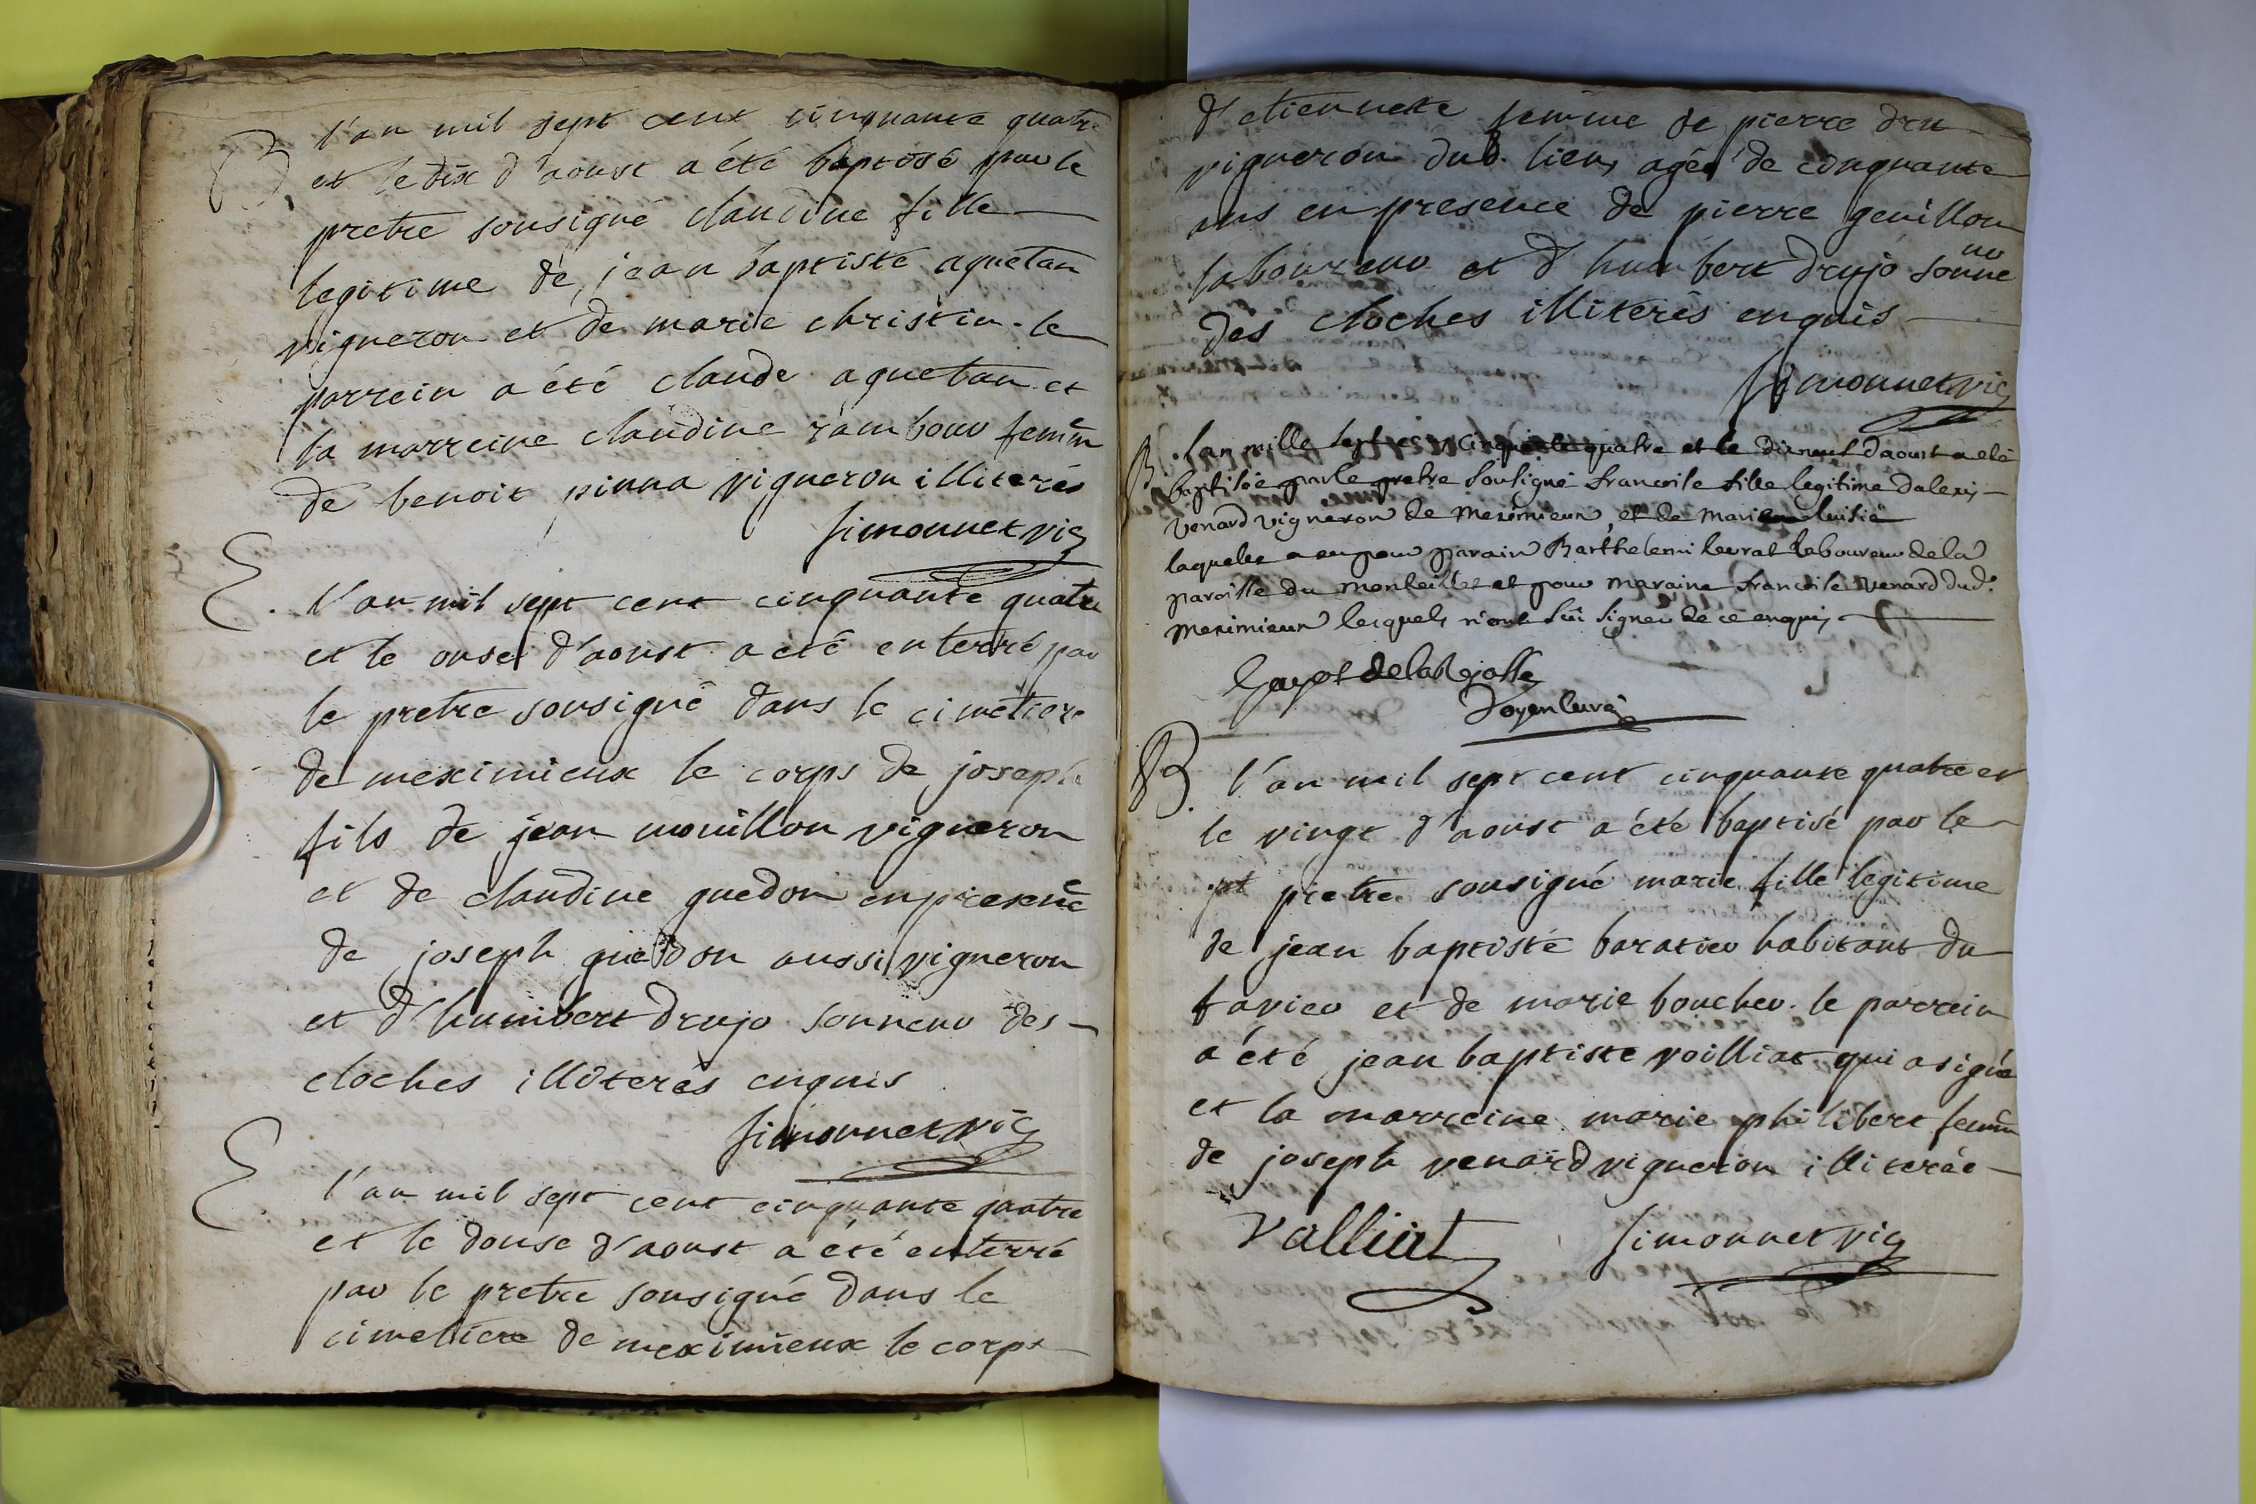 B.
l'an mil sept cent cinquante quatre
et le dix d'aoust a été baptisé par le
pretre sousigné claudine fille
legitime de jean baptiste aquetan
vigneron et de marie christin. le
parrein a été claude aquetan et
la marreine claudine rambour femm
de benoit pinna vigneron illiterés
simonnet vic
E.
l'an mil sept cent cinquante quatre
et le onse d'aoust a été enterré par
le pretre sousigné dans le cimetiere
de meximieux le corps de joseph
fils de jean mouillon vigneron
et de claudine guedon en presence
de joseph guedon aussi vigneron
et d'humbert drujo sonneur des
cloches illiterés enquis
simonnet vic
E.
l'an mil sept cent cinquante quatre
et le douse d'aoust a été enterré
par le pretre sousigné dans le
cimetiere de meximieux le corps
d'etiennete femme de pierre dru
vigneron dud. lieu, agée de cinquante
ans en presence de pierre genillon
laboureur et d'humbert drujo sonneur
des cloches illiterés enquis
simonnet vic
B.
lan mille sept cent cinquante quatre et le dixneuf daoust a eté
baptisée par le pretre Sousigné francoise fille legitime dalexis
venard vigneron de meximieux, et de marie
laquelle a eu pour parain Barthelemi levrat laboureur de la
paroisse du montellier et pour maraine francoise venard dud.
meximieux lesquels n'ont sû signer de ce enquis
Doyen curé
B.
l'an mil sept cent cinquante quatre et
le vingt d'aoust a été baptisé par le
pretre sousigné marie fille legitime
de jean baptiste baratier habitant du
favier et de marie boucher. le parrein
a été jean baptiste voilliat qui a signé
et la marreine marie philibert femm
de joseph venard vigneron illiterée
valliat simonnet vic